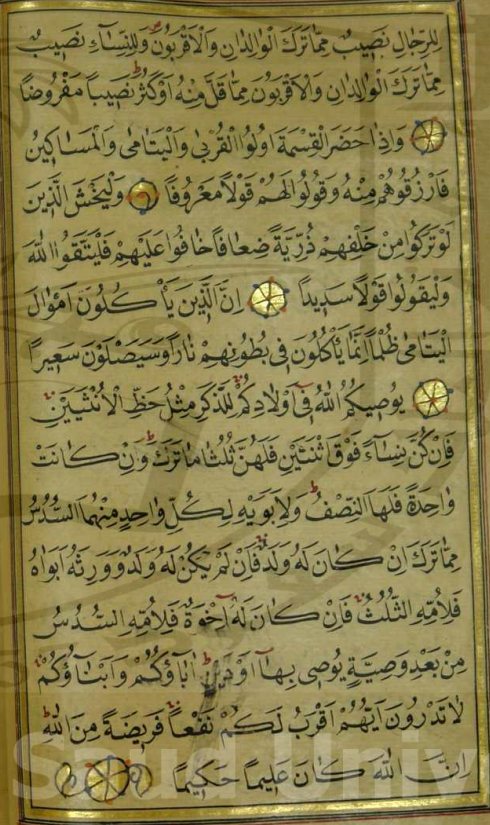 لِلرِّجَالِ نَصِيبٌ مِمَّا تَرَكَ الْوَالِدَانِ وَالْاَقْرَبُونَ وَلِلنِّسَٓاءِ نَصِيبٌ
مِمَّا تَرَكَ الْوَالِدَانِ وَالْاَقْرَبُونَ مِمَّا قَلَّ مِنْهُ اَوْ كَثُرَ نَصِيباً مَفْرُوضاً
وَاِذَا حَضَرَ الْقِسْمَةَ اُولُوا الْقُرْبٰى وَالْيَتَامٰى وَالْمَسَاكِينُ
فَارْزُقُوهُمْ مِنْهُ وَقُولُوا لَهُمْ قَوْلاً مَعْرُوفاً وَلْيَخْشَ الَّذِينَ
لَوْ تَرَكُوا مِنْ خَلْفِهِمْ ذُرِّيَّةً ضِعَافاً خَافُوا عَلَيْهِمْ فَلْيَتَّقُوا اللّٰهَ
وَلْيَقُولُوا قَوْلاً سَدِيداً اِنَّ الَّذِينَ يَأْكُلُونَ اَمْوَالَ
الْيَتَامٰى ظُلْماً اِنَّمَا يَأْكُلُونَ فِى بُطُونِهِمْ نَاراً وَسَيَصْلَوْنَ سَعِيراً
يُوصِيكُمُ اللّٰهُ فِٓى اَوْلَادِكُمْ لِلذَّكَرِ مِثْلُ حَظِّ الْاُنْثَيَيْنِ
فَاِنْ كُنَّ نِسَٓاءً فَوْقَ اثْنَتَيْنِ فَلَهُنَّ ثُلُثَا مَا تَرَكَ وَاِنْ كَانَتْ
وَاحِدَةً فَلَهَا النِّصْفُ وَلِاَبَوَيْهِ لِكُلِّ وَاحِدٍ مِنْهُمَا السُّدُسُ
مِمَّا تَرَكَ اِنْ كَانَ لَهُ وَلَدٌ فَاِنْ لَمْ يَكُنْ لَهُ وَلَدٌ وَوَرِثَهُ اَبَوَاهُ
فَلِاُمِّهِ الثُّلُثُ فَاِنْ كَانَ لَهُٓ اِخْوَةٌ فَلِاُمِّهِ السُّدُسُ
مِنْ بَعْدِ وَصِيَّةٍ يُوصِى بِهَٓا اَوْ دَيْنٍ اٰبَٓاؤُكُمْ وَاَبْنَٓاؤُكُمْ
لَا تَدْرُونَ اَيُّهُمْ اَقْرَبُ لَكُمْ نَفْعاً فَرِيضَةً مِنَ اللّٰهِ
اِنَّ اللّٰهَ كَانَ عَلِيماً حَكِيماً
Saud Univ